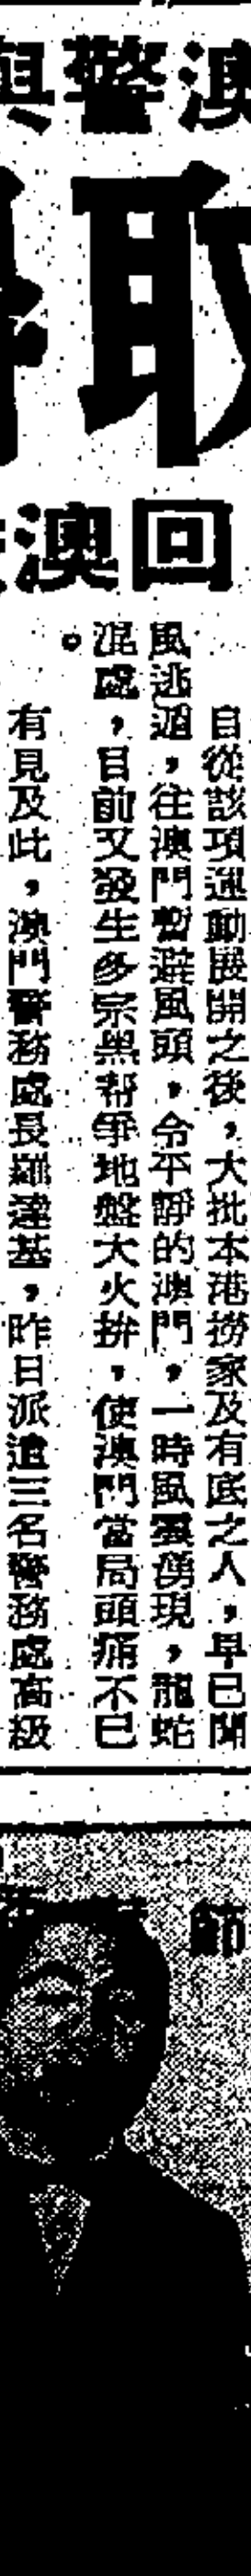 澳警與
取
回澳
自從該項運動展開之後，大批本港撈家及有底之人，早已聞
風逃遁，往澳門暫避風頭，令平靜的澳門，一時風雲湧現，龍蛇
混處，目前又發生多宗黑帮爭地盤大火拚，使澳門當局頭痛不已
。
有見及此，澳門警務處長羅達基，昨日派遣三名警務處高級
節